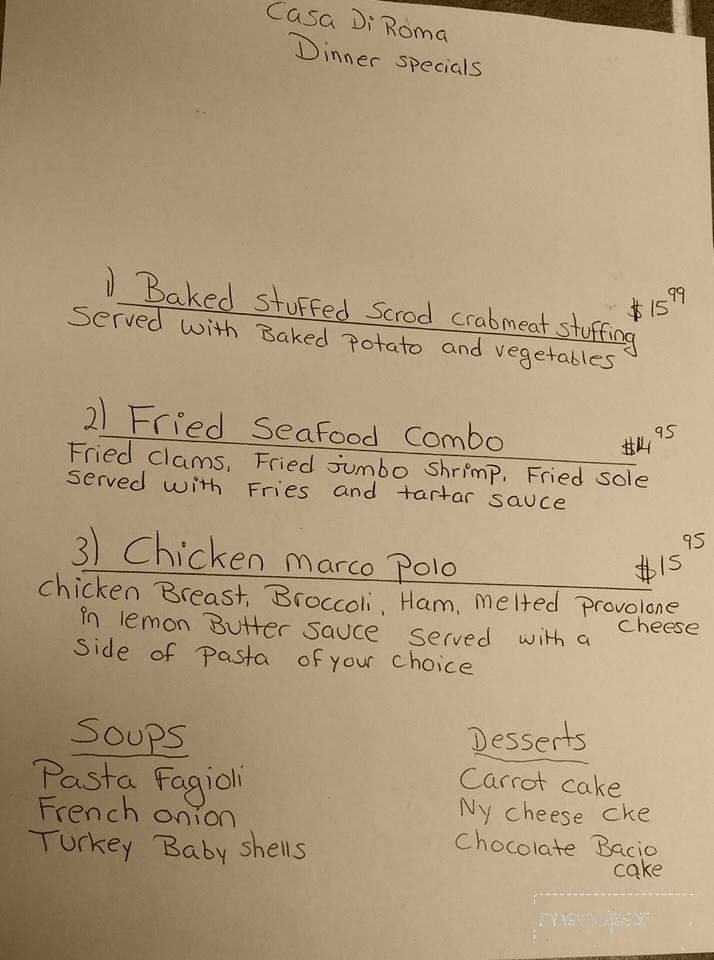 Casa Di Roma
Dinner specials
1) Baked stuffed scrod crabmeat stuffing $15 99
Served with Baked potato and vegetables
2) Fried seafood combo $14 95
Fried clams, Fried jumbo shrimp, Fried sole
served with Fries and tartar sauce
3) Chicken marco polo $15 95
chicken Breast, Broccoli, Ham, melted provolone
cheese
in lemon Butter sauce served with a
side of pasta of your choice
Soups
Pasta Fagioli
French onion
Turkey Baby shells
Desserts
Carrot cake
Ny cheese cke
Chocolate Bacio
cake
menupix